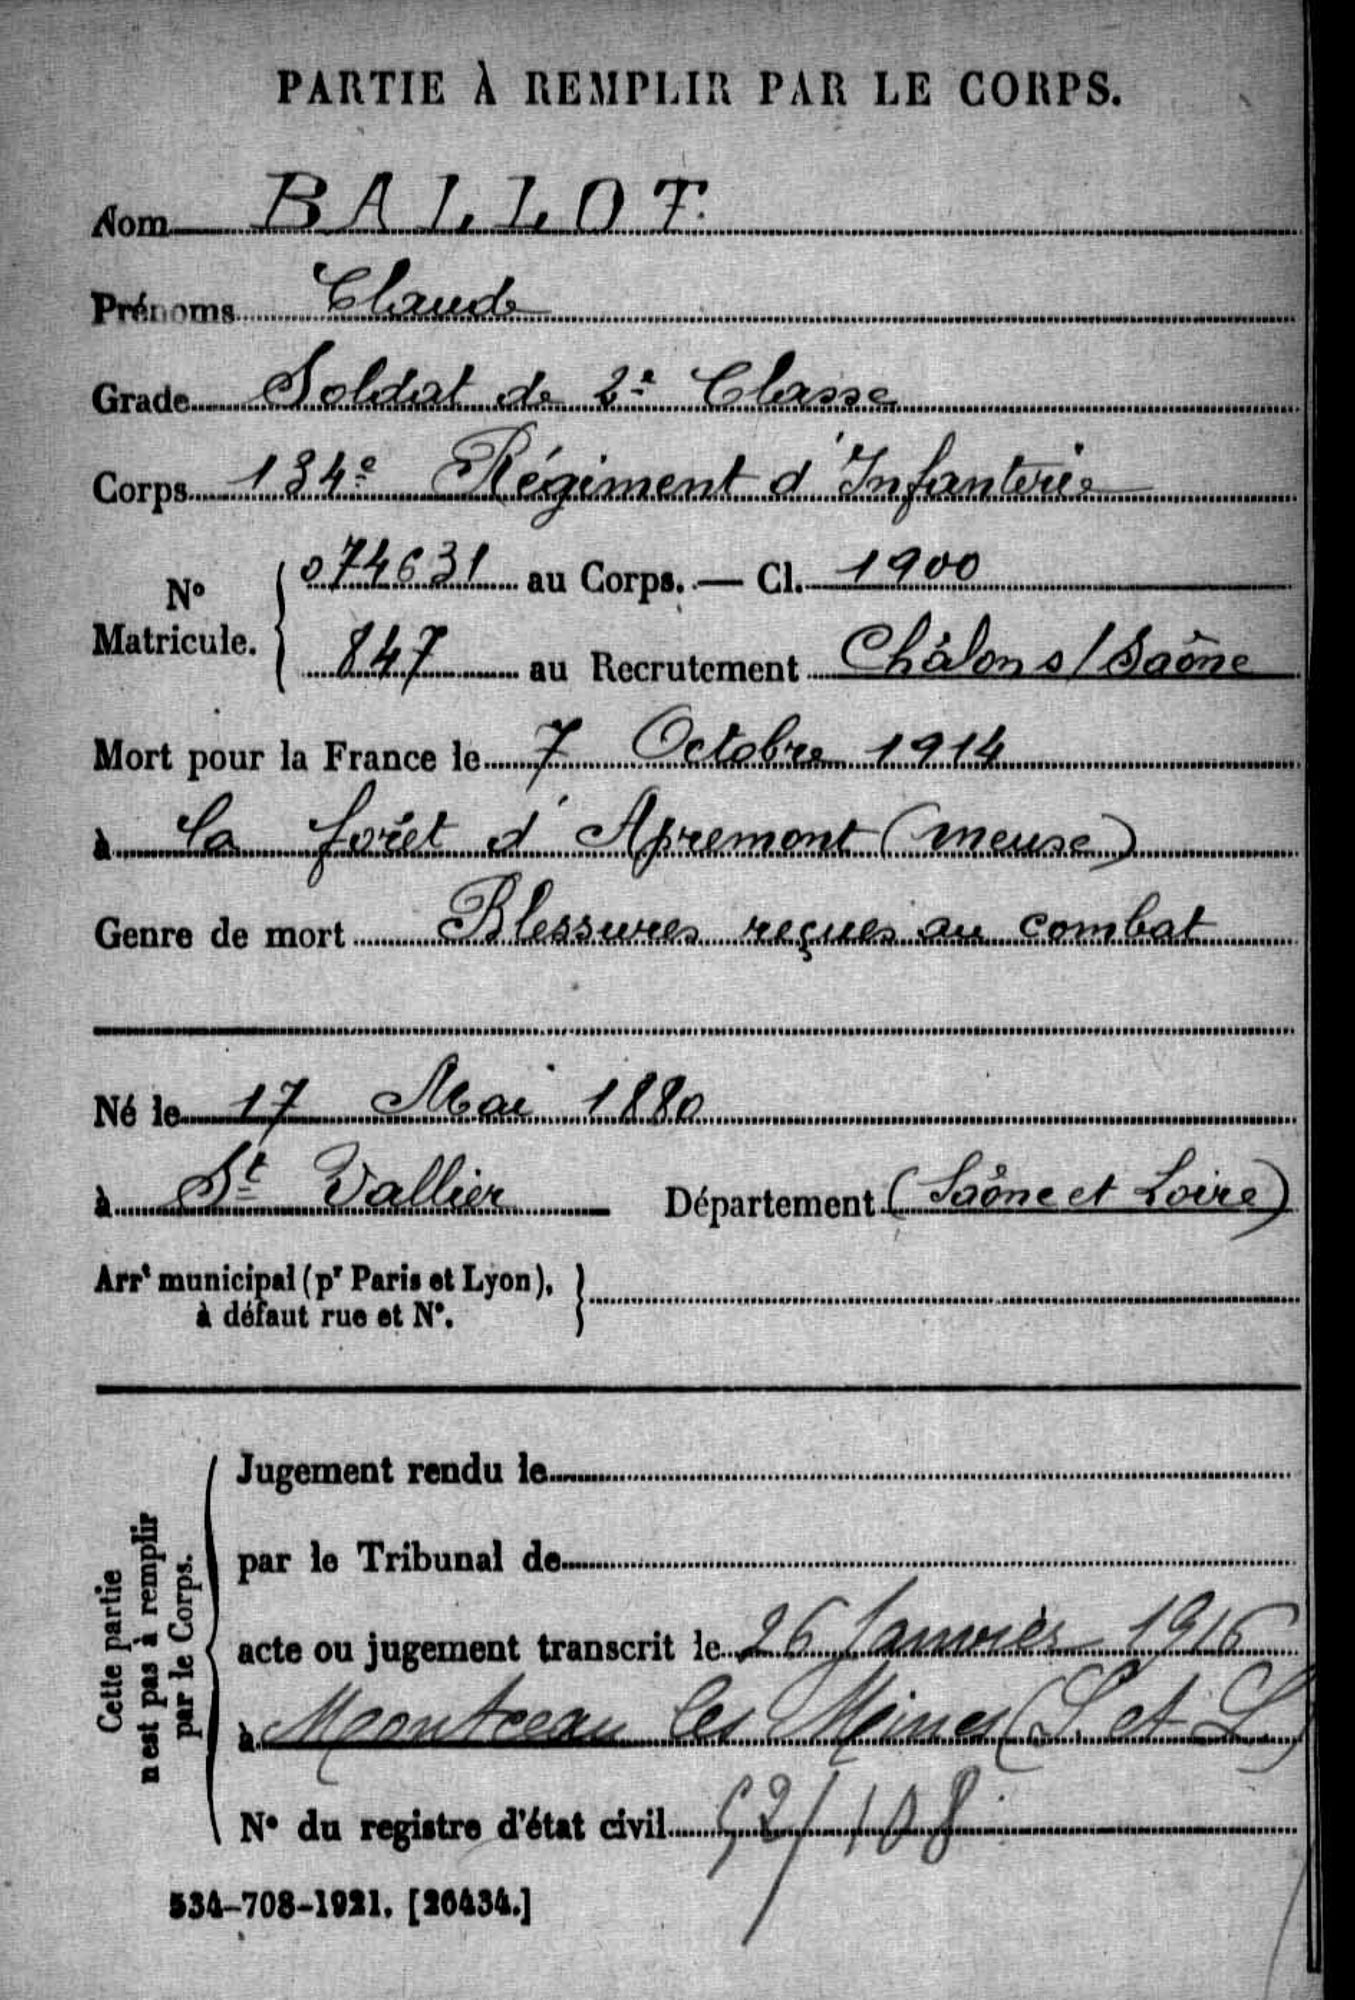 PARTIE À REMPLIR PAR LE CORPS.
Nom BALLOT.
Prénoms Claude
Grade Soldat de 2e Classe
Corps 134e Régiment d'Infanterie
No Matricule. 074631 au Corps. — Cl. 1900
847 au Recrutement Châlon s/Saône
Mort pour la France le 7 Octobre 1914
à la forêt d'Apremont (Meuse)
Genre de mort Blessures reçues au combat
Né le 17 Mai 1880
à St Vallier Département (Saône et Loire)
Arrt municipal (pr Paris et Lyon),
à défaut rue et N°.
Cette partie
n'est pas à remplir
par le Corps.
Jugement rendu le
par le Tribunal de
acte ou jugement transcrit le 26 Janvier 1916
à Montceau les Mines (S. et L.)
N° du registre d'état civil 52/108
534-708-1921. [26434.]